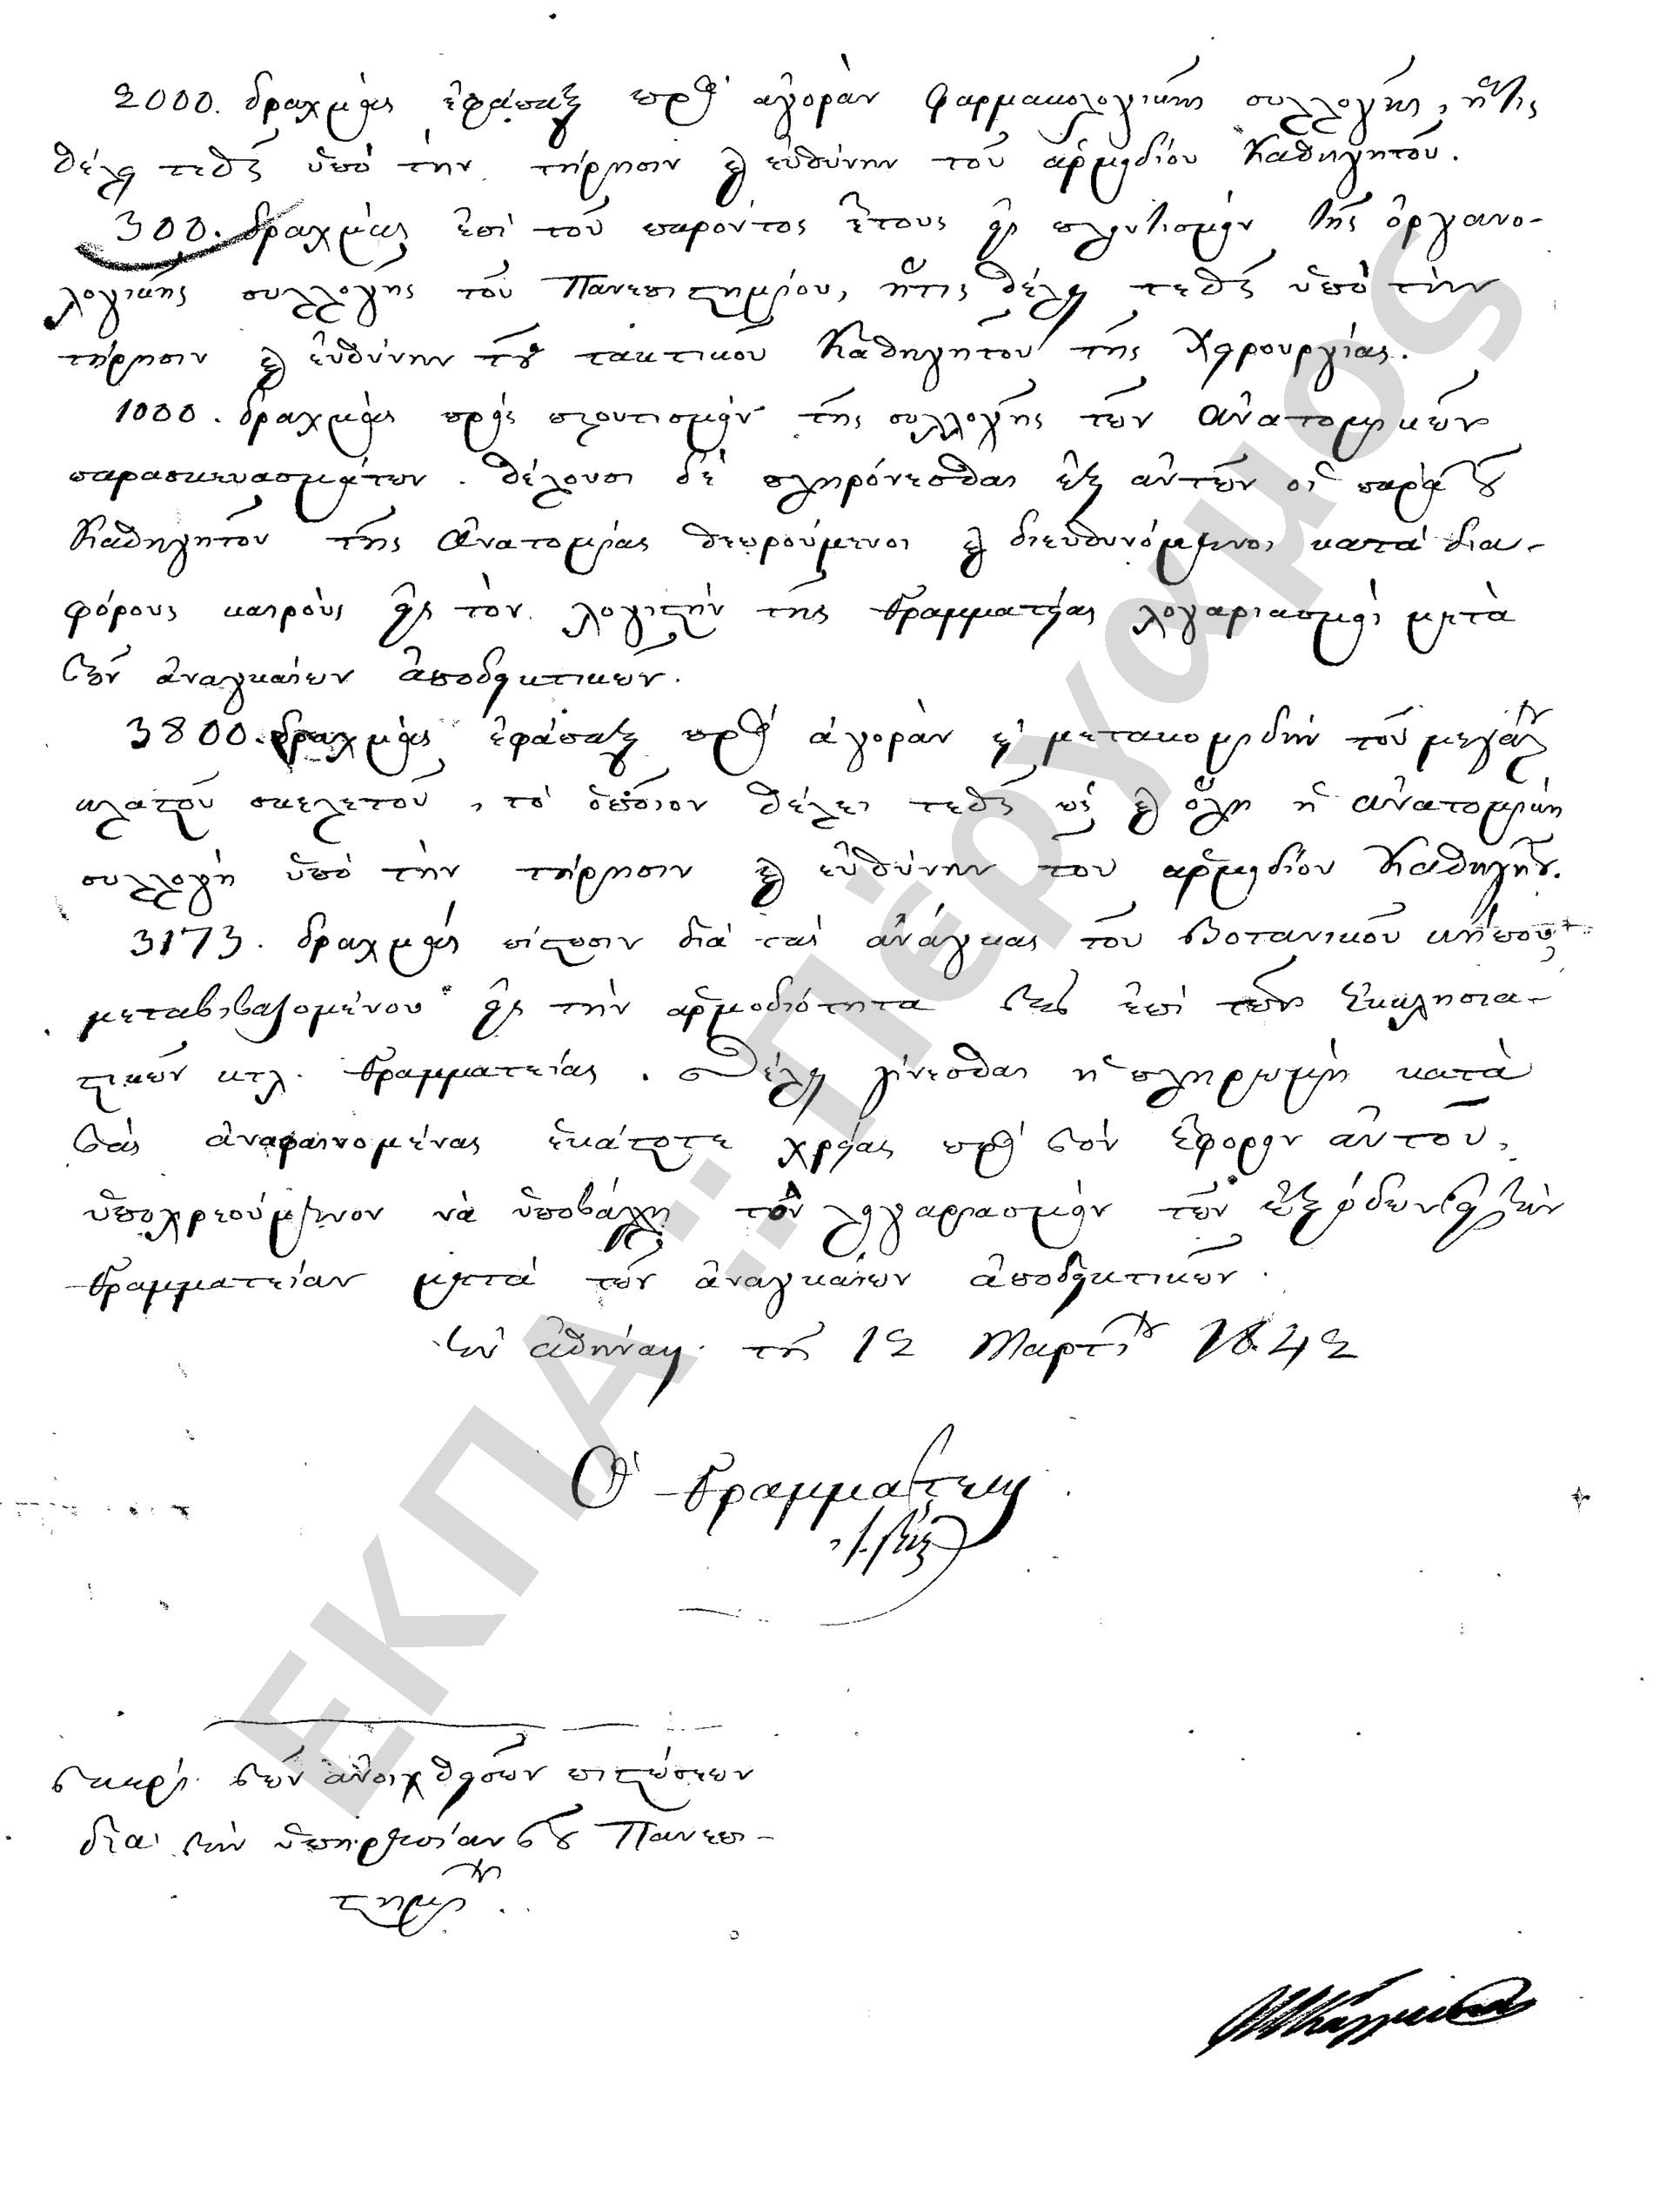 2000. δραχμὰς ἐφάπαξ πρὸς ἀγορὰν φαρμακολογικῆς συλλογῆς, ἥτις
θέλει τεθῆ ὑπὸ τὴν τήρησιν καὶ εὐθύνην τοῦ ἁρμοδίου Καθηγητοῦ.
300. δραχμὰς ἐπὶ τοῦ παρόντος ἔτους εἰς πλουτισμὸν τῆς ὀργανο-
λογικῆς συλλογῆς τοῦ Πανεπιστημίου, ἥτις θέλει τεθῆ ὑπὸ τὴν
τήρησιν καὶ εὐθύνην τοῦ τακτικοῦ Καθηγητοῦ τῆς Χειρουργίας.
1000. δραχμὰς πρὸς πλουτισμὸν τῆς συλλογῆς τῶν ἀνατομικῶν
παρασκευασμάτων. θέλουσι δὲ πληρόνεσθαι ἐξ αὐτῶν οἱ παρὰ τοῦ
Καθηγητοῦ τῆς Ἀνατομίας θεωρούμενοι καὶ διευθυνόμενοι κατὰ δια-
φόρους καιροὺς εἰς τὸν λογιστὴν τῆς Γραμματείας λογαριασμοὶ μετὰ
τῶν ἀναγκαίων ἀποδεικτικῶν.
3800. δραχμὰς ἐφάπαξ πρὸς ἀγορὰν καὶ μετακομιδὴν τοῦ μεγάλου
πλαστοῦ σκελετοῦ, τὸ ὁποῖον θέλει τεθῆ ὡς καὶ ὅλη ἡ ἀνατομικὴ
συλλογὴ ὑπὸ τὴν τήρησιν καὶ εὐθύνην τοῦ ἁρμοδίου Καθηγητοῦ.
3173. δραχμὰς πίστωσιν διὰ τὰς ἀνάγκας τοῦ Βοτανικοῦ κήπου,
μεταβιβαζομένου εἰς τὴν ἁρμοδιότητα τῆς ἐπὶ τῶν Ἐκκλησια-
στικῶν κτλ. Γραμματείας. Θέλει γίνεσθαι ἡ πληρωμὴ κατὰ
τὰς ἀναφαινομένας ἑκάστοτε χρείας πρὸς τὸν ἔφορον αὐτοῦ,
ὑποχρεούμενον νὰ ὑποβάλλη τὸν λογαριασμὸν τῶν ἐξόδων εἰς τὴν
Γραμματείαν μετὰ τῶν ἀναγκαίων ἀποδεικτικῶν.
Ἐν Ἀθήναις τῇ 12 Μαρτίου 1842
Ὁ Γραμματεὺς
περὶ τῶν ἀνοιχθεισῶν πιστώσεων
διὰ τὴν ὑπηρεσίαν τοῦ Πανεπι-
στημίου.
ΕΚΠΑ:: Πέργαμος